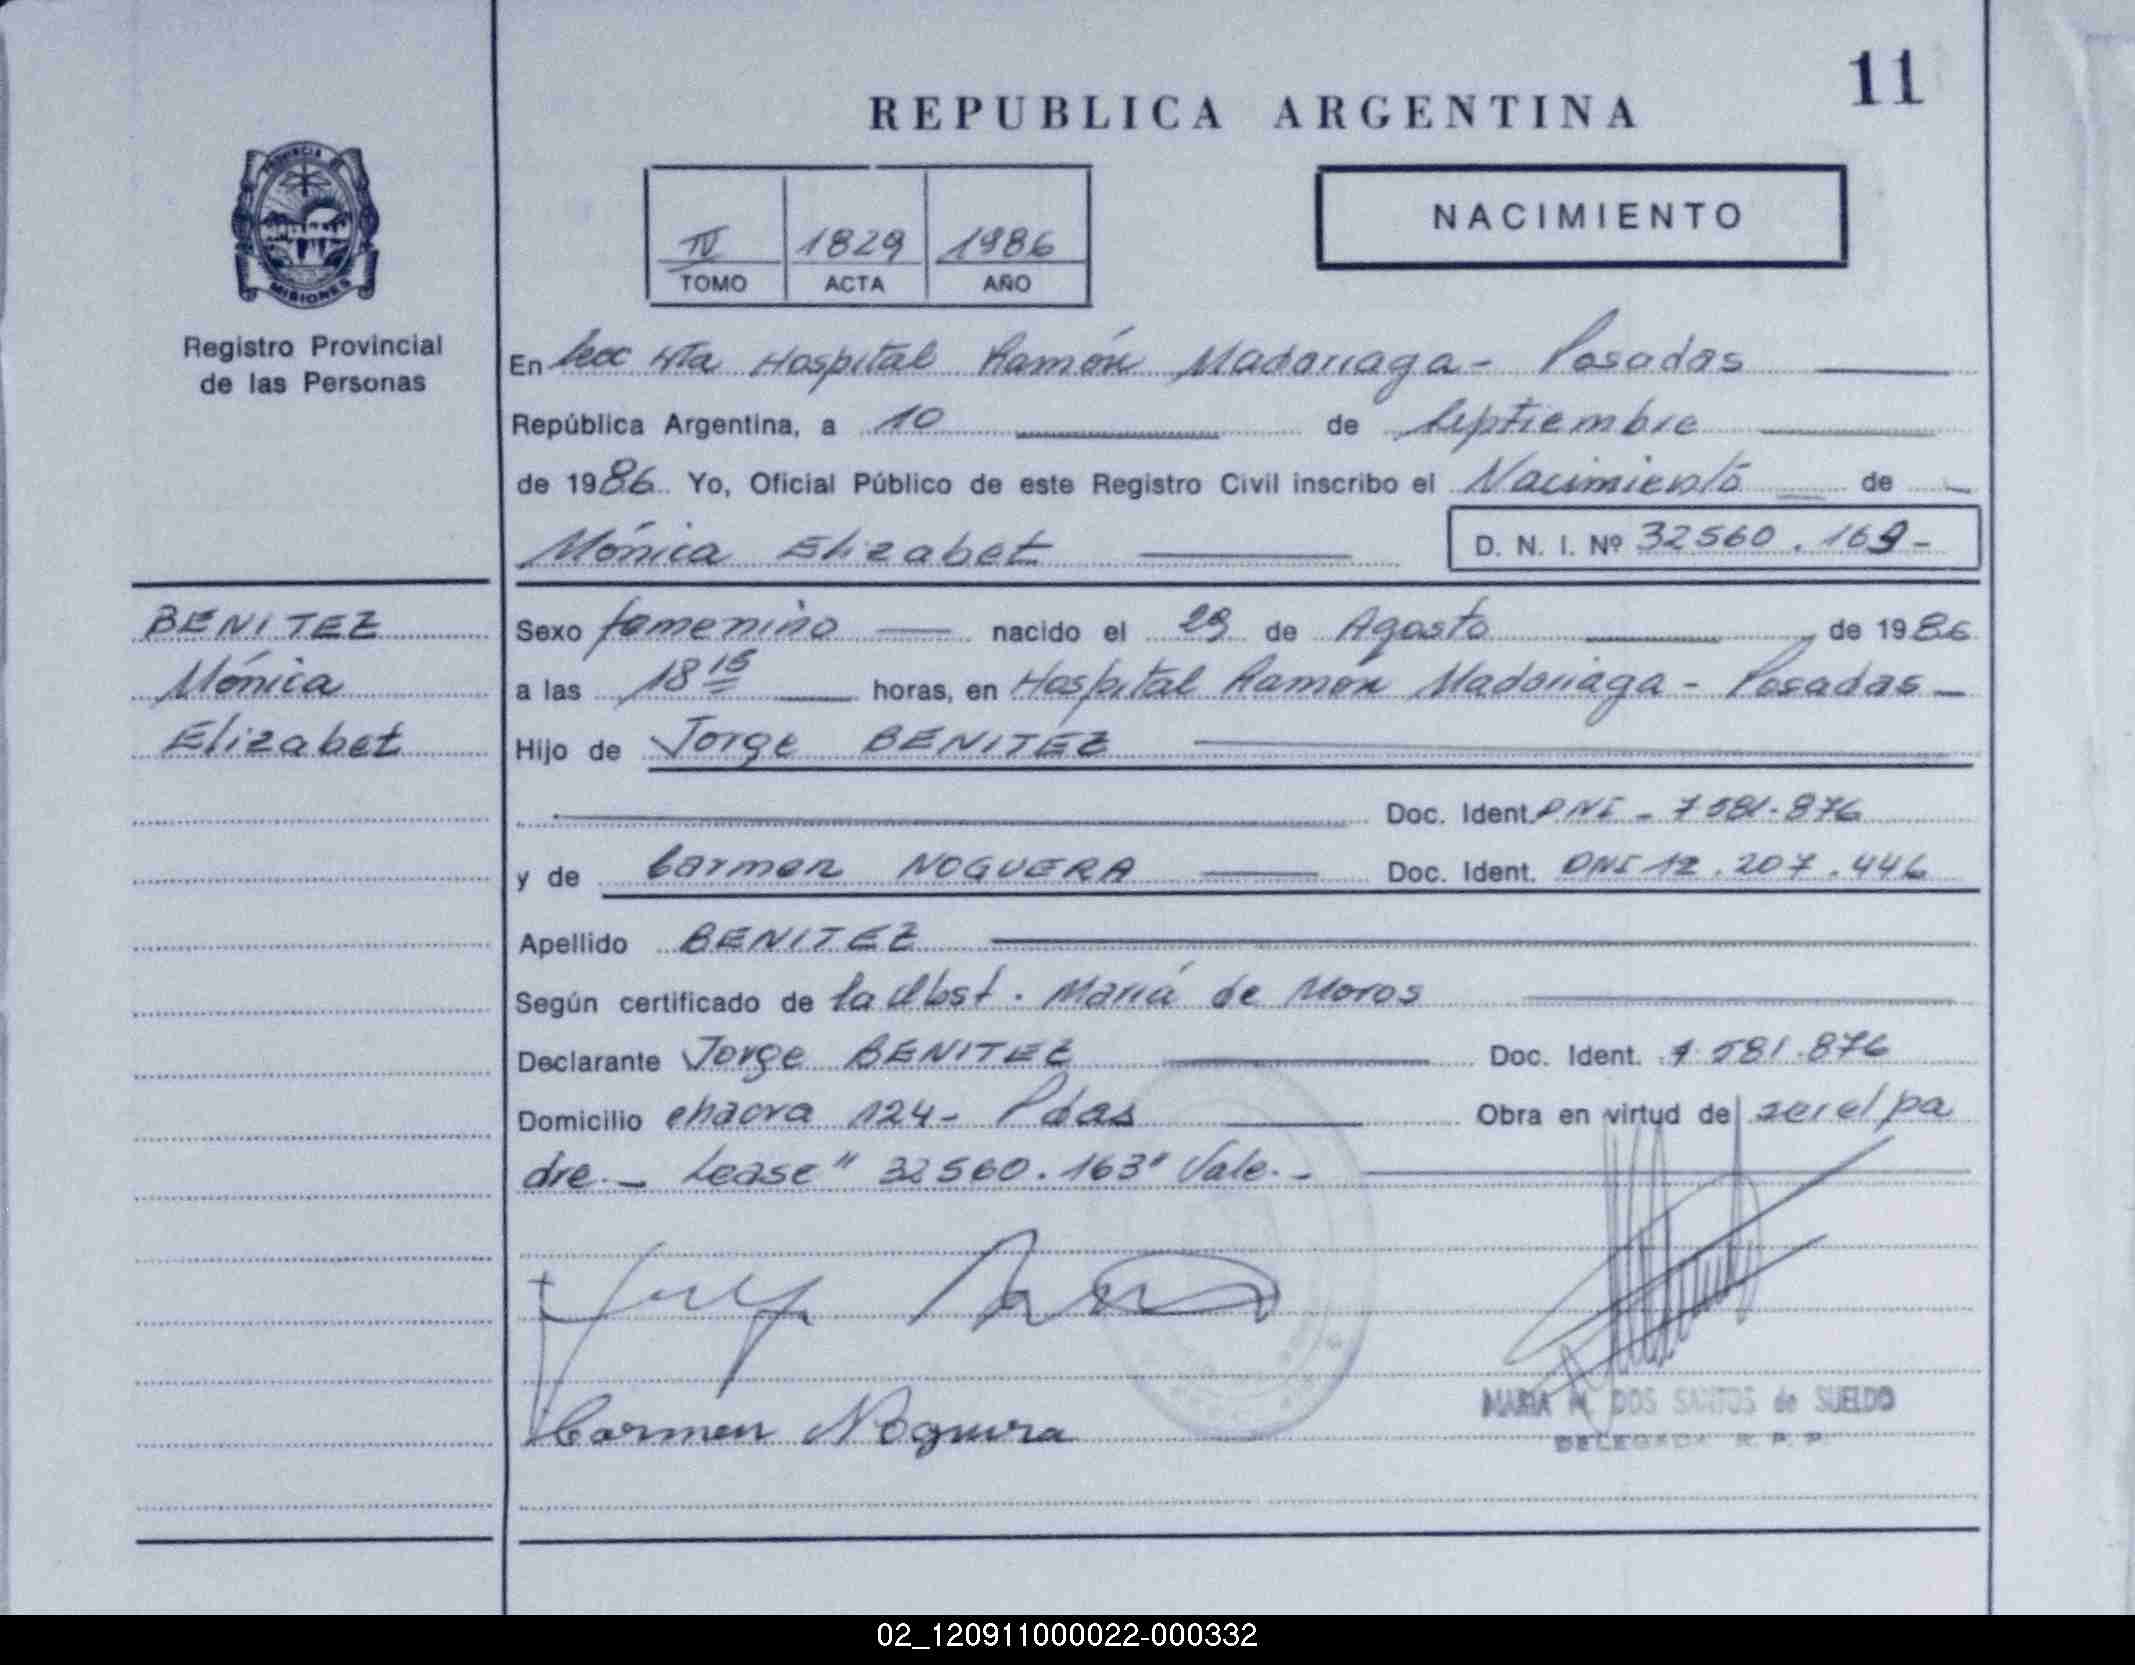 11
REPUBLICA ARGENTINA
PROVINCIA DE
MISIONES
Registro Provincial
de las Personas
IV 1829 1986
TOMO ACTA AÑO
NACIMIENTO
En Secc 4ta Hospital Ramón Madariaga - Posadas
República Argentina, a 10 de Septiembre
de 1986 Yo, Oficial Público de este Registro Civil inscribo el Nacimiento de
Mónica Elizabet D. N. I. Nº 32560.169-
BENITEZ
Mónica
Elizabet
Sexo femenino nacido el 29 de Agosto de 1986
a las 18 15 horas, en Hospital Ramón Madariaga - Posadas -
Hijo de Jorge BENITEZ
Doc. Ident. DNI - 7581.876
y de Carmen NOGUERA Doc. Ident. DNI 12.207.446
Apellido BENITEZ
Según certificado de la Obst. María de Moros
Declarante Jorge BENITEZ Doc. Ident. 7.581.876
Domicilio chacra 124- Pdas Obra en virtud de ser el pa
dre - Lease "32560.163" Vale.-
Carmen Noguera
MARIA M. DOS SANTOS de SUELDO
DELEGADA R. P. P.
02_120911000022-000332